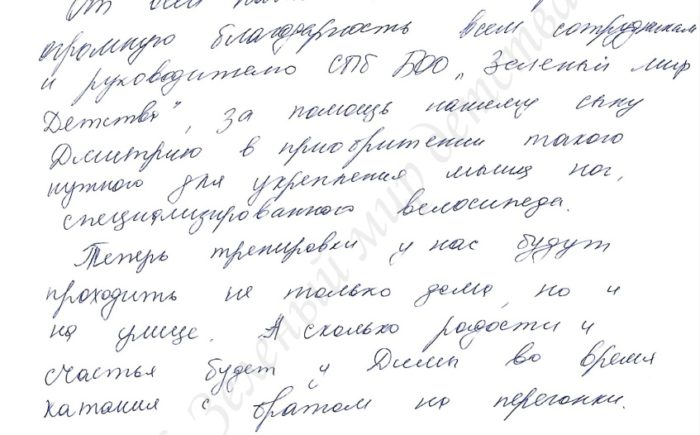 От всей
огромную благодарность всем сотрудникам
и руководителю СПб БОО „Зеленый мир
Детства", за помощь нашему сыну
Дмитрию в приобритении такого
нужного для укрепления мышц ног,
специализированного велосипеда.
Теперь тренировки у нас будут
проходить не только дома, но и
на улице. А сколько радости и
счастья будет у Димы во время
катания с братом на перегонки.
Зеленый мир детства